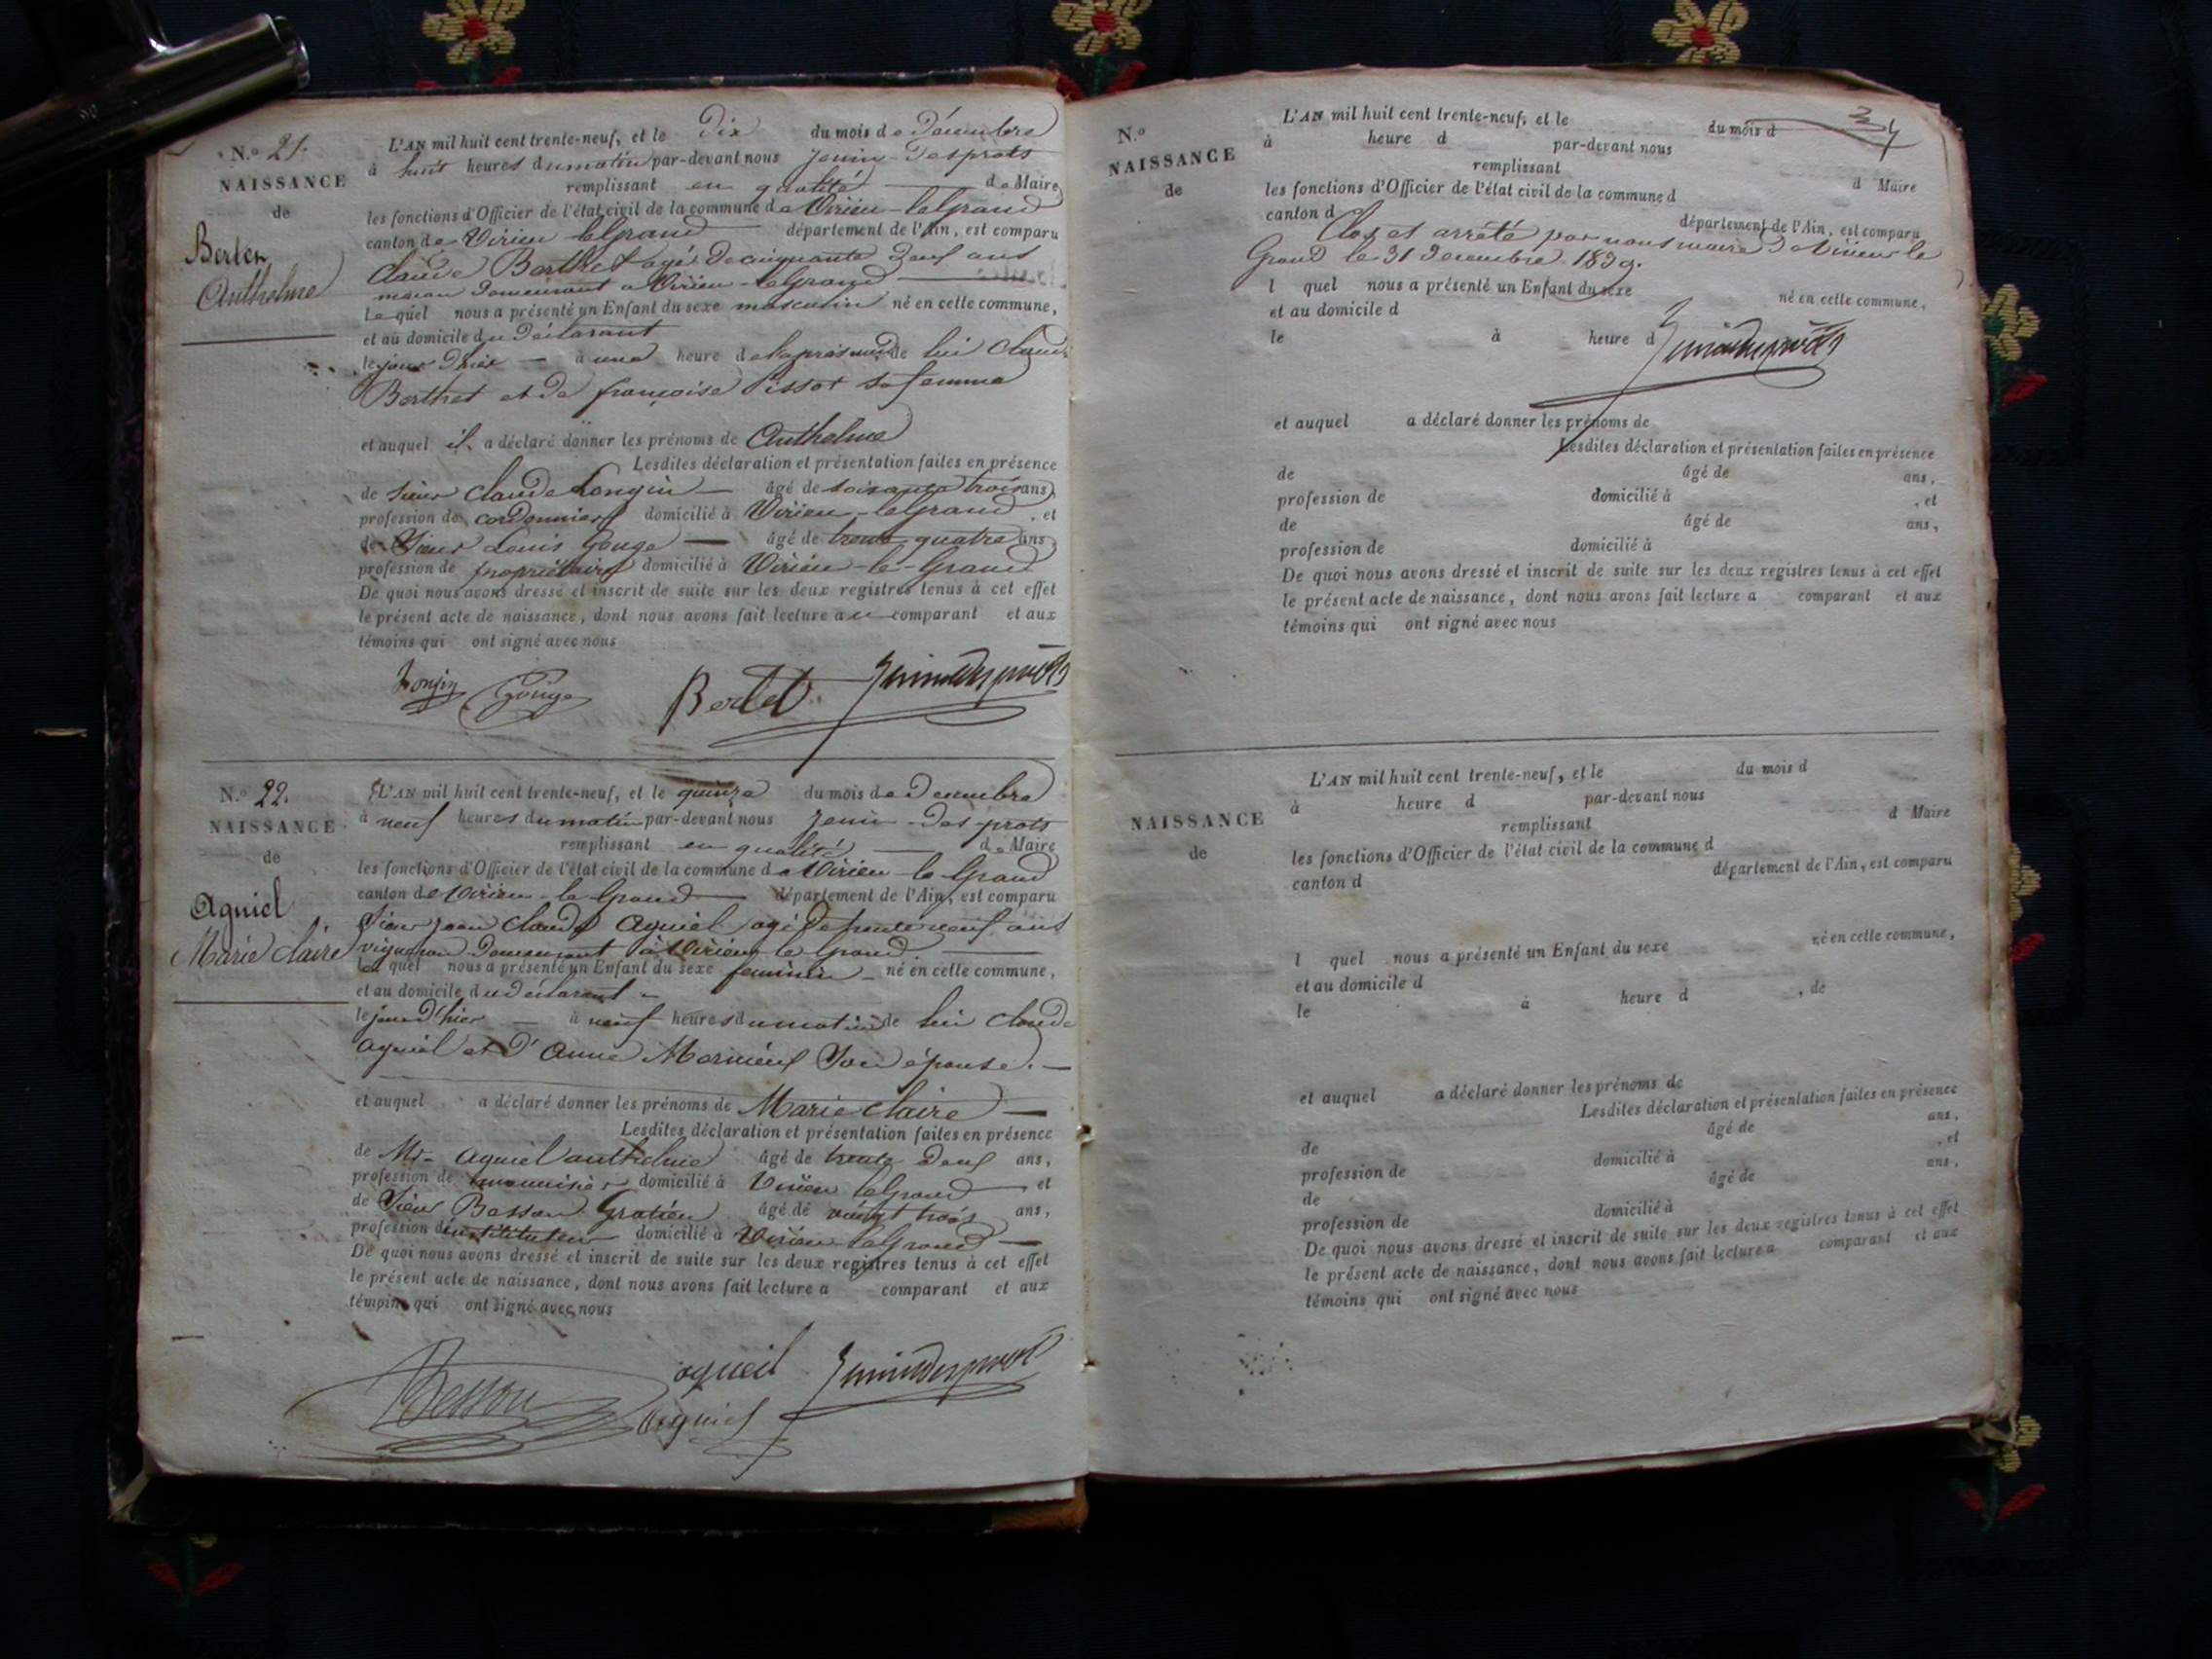 N.o 21.
NAISSANCE
de
Berlet
Anthelme
L'AN mil huit cent trente-neuf, et le dix du mois de décembre
à huit heures du matin par-devant nous Jenin-Desprots
remplissant en qualité de Maire
les fonctions d'Officier de l'état civil de la commune de Virieu-le Grand
canton de Virieu le Grand département de l'Ain, est comparu
Claude Berthet agé de cinquante deux ans
maçon demeurant a Virieu-le Grand
Lequel nous a présenté un Enfant du sexe masculin né en cette commune,
et au domicile du Déclarant
le jour d'hier à une heure de l'après midi de lui Claude
Berthet et de françoise Pissot sa femme
et auquel il a déclaré donner les prénoms de Anthelme
Lesdites déclaration et présentation faites en présence
de Sieur Claude Longin âgé de soixante trois ans,
profession de cordonnier domicilié à Virieu-le Grand, et
de Sieur Louis Gouge âgé de trente quatre ans
profession de propriétaire domicilié à Virieu-le-Grand
De quoi nous avons dressé et inscrit de suite sur les deux registres tenus à cet effet
le présent acte de naissance, dont nous avons fait lecture au comparant et aux
témoins qui ont signé avec nous
Lonjin Gouge Bertet Jenindesprots
N.o 22.
NAISSANCE
de
Aguiel
Marie Claire
L'AN mil huit cent trente-neuf, et le quinze du mois de Decembre
à neuf heures du matin par-devant nous Jenin-Des-prots
remplissant en qualité de Maire
les fonctions d'Officier de l'état civil de la commune de Virieu-le Grand
canton de Virieu-le Grand département de l'Ain, est comparu
Sieur Jean Claude Aguiel agé de trente neuf ans
vigneron Demeurant à Virieu le Grand
Lequel nous a présenté un Enfant du sexe feminin né en cette commune,
et au domicile du déclarant
le jour d'hier à neuf heures du matin de lui Claude
Aguiel et d'Anne Mornieux Son épouse.
et auquel a déclaré donner les prénoms de Marie Claire
Lesdites déclaration et présentation faites en présence
de Mr Aguiel anthelme âgé de trente Deux ans,
profession de menuisier domicilié à Virieu le Grand et
de Sieur Bessou Gratien âgé de vingt trois ans,
profession d'instituteur domicilié à Virieu le Grand
De quoi nous avons dressé et inscrit de suite sur les deux registres tenus à cet effet
le présent acte de naissance, dont nous avons fait lecture a comparant et aux
témoins qui ont signé avec nous
Bessou aqueil Jenindesprots
Aguiel
34
N.o
NAISSANCE
de
L'AN mil huit cent trente-neuf, et le du mois d
à heure d par-devant nous
remplissant d Maire
les fonctions d'Officier de l'état civil de la commune d
canton d département de l'Ain, est comparu
Clos et arrêté par nous maire de Virieu le
Grand le 31 Decembre 1839.
l quel nous a présenté un Enfant du sexe né en cette commune,
et au domicile d
le à heure d
Jenindesprots
et auquel a déclaré donner les prénoms de
Lesdites déclaration et présentation faites en présence
de âgé de ans,
profession de domicilié à , et
de âgé de ans,
profession de domicilié à
De quoi nous avons dressé et inscrit de suite sur les deux registres tenus à cet effet
le présent acte de naissance, dont nous avons fait lecture a comparant et aux
témoins qui ont signé avec nous
NAISSANCE
de
L'AN mil huit cent trente-neuf, et le du mois d
à heure d par-devant nous
remplissant d Maire
les fonctions d'Officier de l'état civil de la commune d
canton d département de l'Ain, est comparu
l quel nous a présenté un Enfant du sexe né en cette commune,
et au domicile d
le à heure d , de
et auquel a déclaré donner les prénoms de
Lesdites déclaration et présentation faites en présence
de âgé de ans,
profession de domicilié à , et
de âgé de ans,
profession de domicilié à
De quoi nous avons dressé et inscrit de suite sur les deux registres tenus à cet effet
le présent acte de naissance, dont nous avons fait lecture a comparant et aux
témoins qui ont signé avec nous